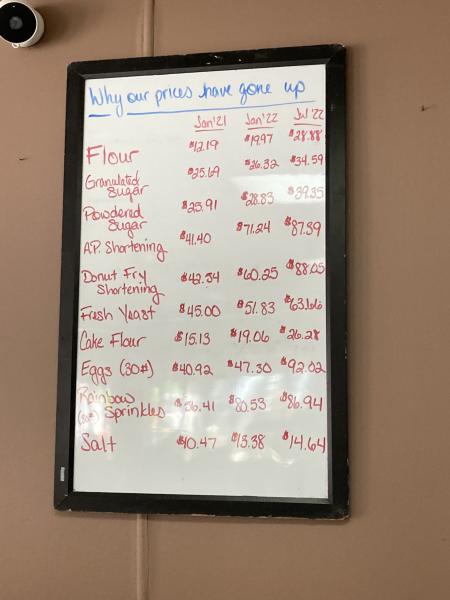 Why our prices have gone up
Jan'21 Jan'22 Jul '22
Flour $12.19 $19.97 $28.88
Granulated Sugar $25.69 $26.32 $34.59
Powdered Sugar $25.91 $28.83 $39.35
A.P. Shortening $41.40 $71.24 $87.39
Donut Fry Shortening $42.34 $60.25 $88.05
Fresh Yeast $45.00 $51.83 $63.66
Cake Flour $15.13 $19.06 $26.28
Eggs (30#) $40.92 $47.30 $92.02
Rainbow Sprinkles $56.41 $80.53 $86.94
Salt $10.47 $13.38 $14.64